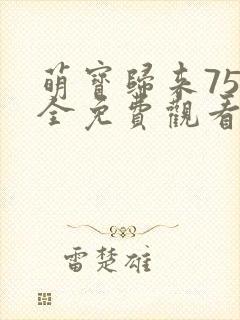 萌寶歸來75
全免費觀看
雷楚雄